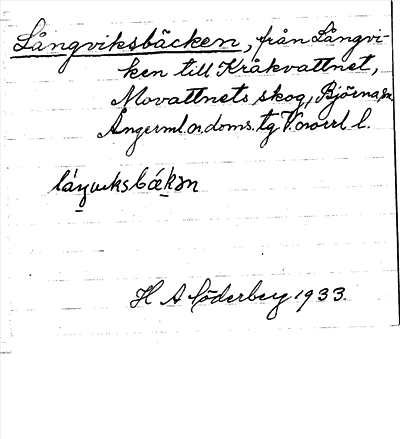 Långviksbäcken, från Långvi-
ken till Kråkvattnet,
Movattnets skog, Björna sn.
Ångerml. n. doms. tg V.norrl l.
H A Söderberg 1933.